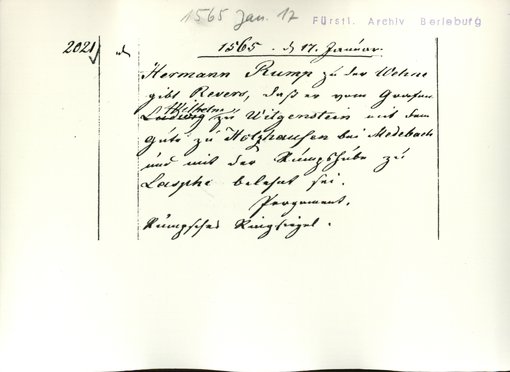 1565 Jan. 17
Fürstl. Archiv Berleburg
2021
1565. d 17. Januar.
Hermann Rump zu der Wehne
gibt Revers, daß er vom Grafen
Wilhelm
Ludwig zu Witgenstein mit dem
Gute zu Holzhausen bei Medebach
und mit der Rumpshube zu
Laasphe belehnt sei.
Pergament.
Rumpsches Ringsiegel.